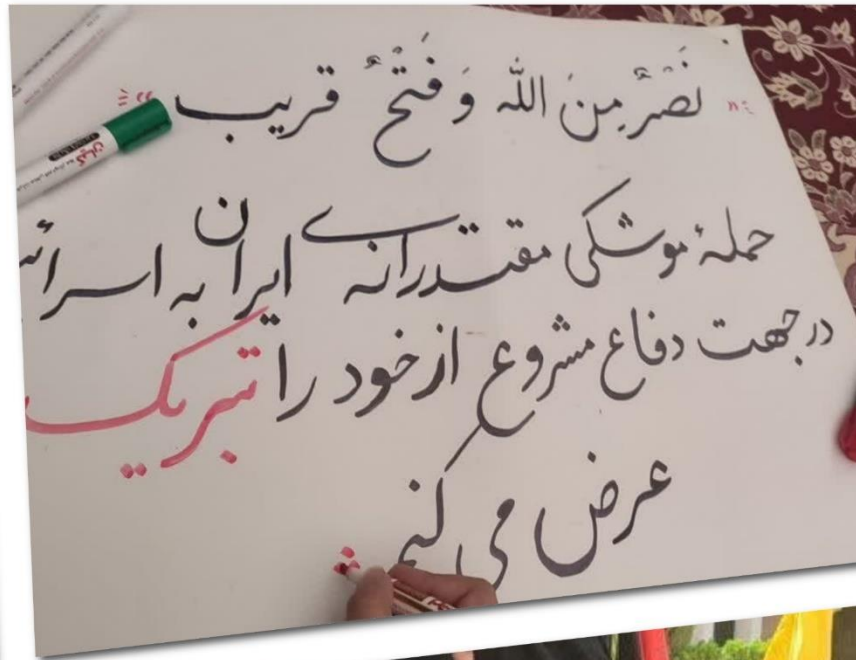 نَصْرٌ مِنَ اللّه وَ فَتْحٌ قریب
حملهٔ موشکی مقتدرانه‌ی ایران به اسرائی
در جهت دفاع مشروع از خود را تبریک
عرض می کنم